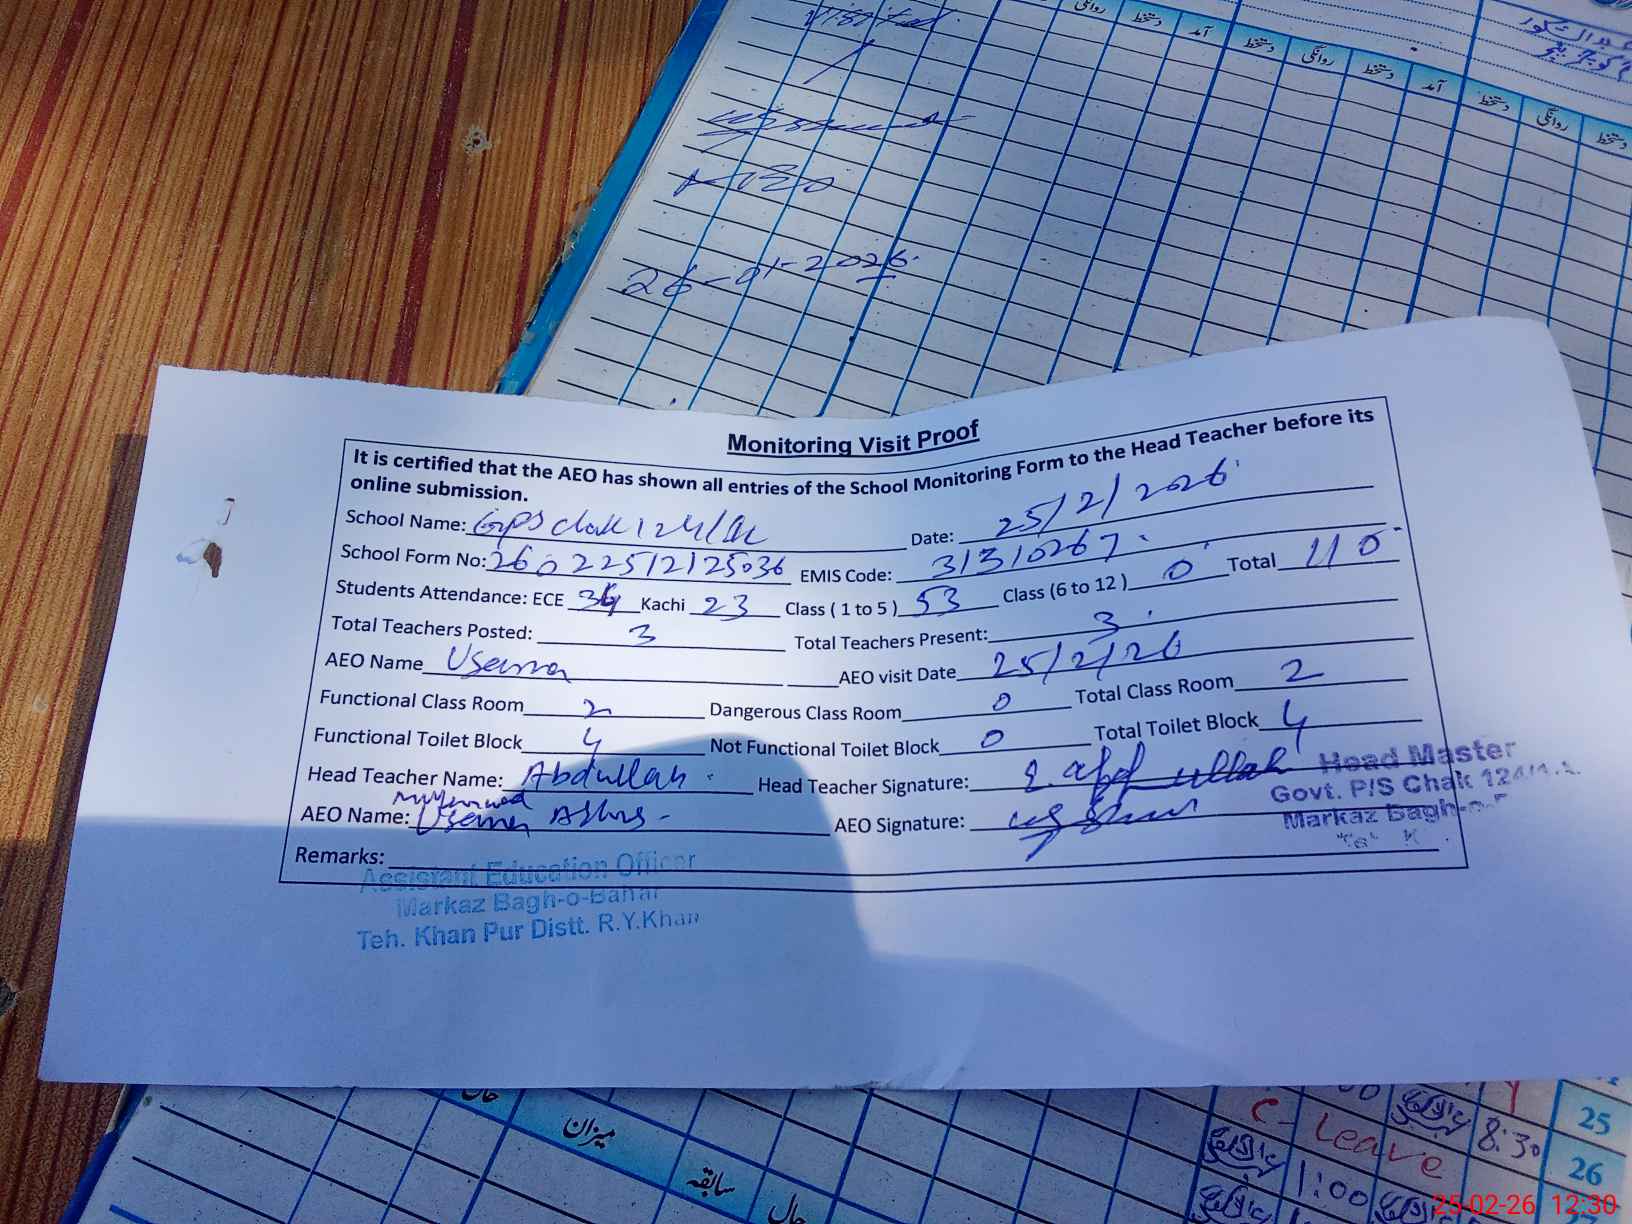 visited
روانگی دستخط آمد دستخط روانگی دستخط آمد دستخط روانگی دستخط
AEO
26-01-2026
Monitoring Visit Proof
It is certified that the AEO has shown all entries of the School Monitoring Form to the Head Teacher before its
online submission.
School Name: GPS chak 124/1L Date: 25/2/2026
School Form No: EMIS Code: 31310267
Students Attendance: ECE 34 Kachi 23 Class ( 1 to 5 ) 53 Class (6 to 12 ) 0 Total 110
Total Teachers Posted: 3 Total Teachers Present: 3
AEO Name Usama AEO visit Date 25/2/26
Functional Class Room 2 Dangerous Class Room 0 Total Class Room 2
Functional Toilet Block 4 Not Functional Toilet Block 0 Total Toilet Block 4
Head Teacher Name: Abdullah Head Teacher Signature:
Head Master
Govt. P/S Chak 124/1.L
Markaz Bagh-o-
Muhammad
AEO Name: Usama AEO Signature:
Remarks:
Assistant Education Officer
Markaz Bagh-o-Bahar
Teh. Khan Pur Distt. R.Y.Khan
میزان
سابقہ
حال
C- Leave
8:30
1:00
25
26
25-02-26 12:30